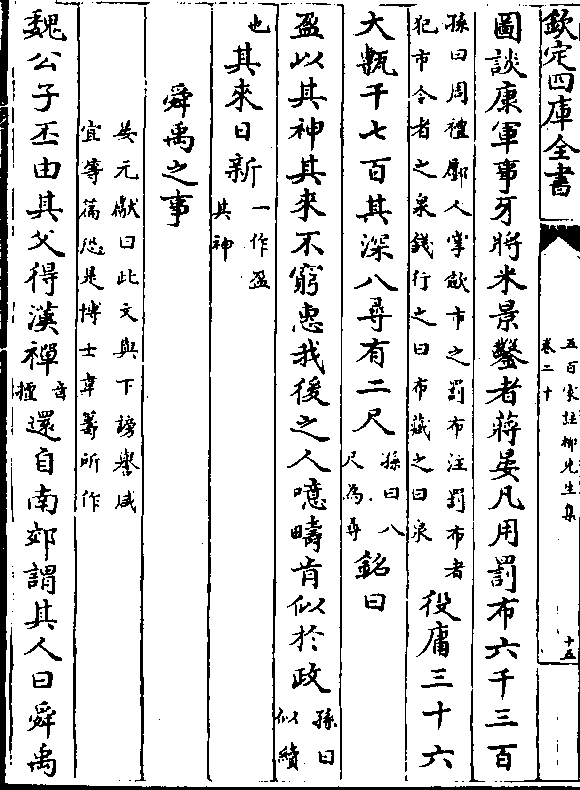 欽定四庫全書
五百家註柳先生集
卷二十
十五
圖談康軍事牙將米景鑿者蔣晏凡用罰布六千三百
孫曰周禮廛人掌斂市之罰布注罰布者
犯市令者之泉錢行之曰布藏之曰泉
役庸三十六
大甎千七百其深八尋有二尺
孫曰八
尺為尋
銘曰
盈以其神其來不窮惠我後之人噫疇肯似於政
孫曰
似續
也
其來日新
一作盈
其神
舜禹之事
晏元獻曰此文與下謗譽咸
宜等篇恐是博士韋籌所作
魏公子丕由其父得漢禪
音
擅
還自南郊謂其人曰舜禹